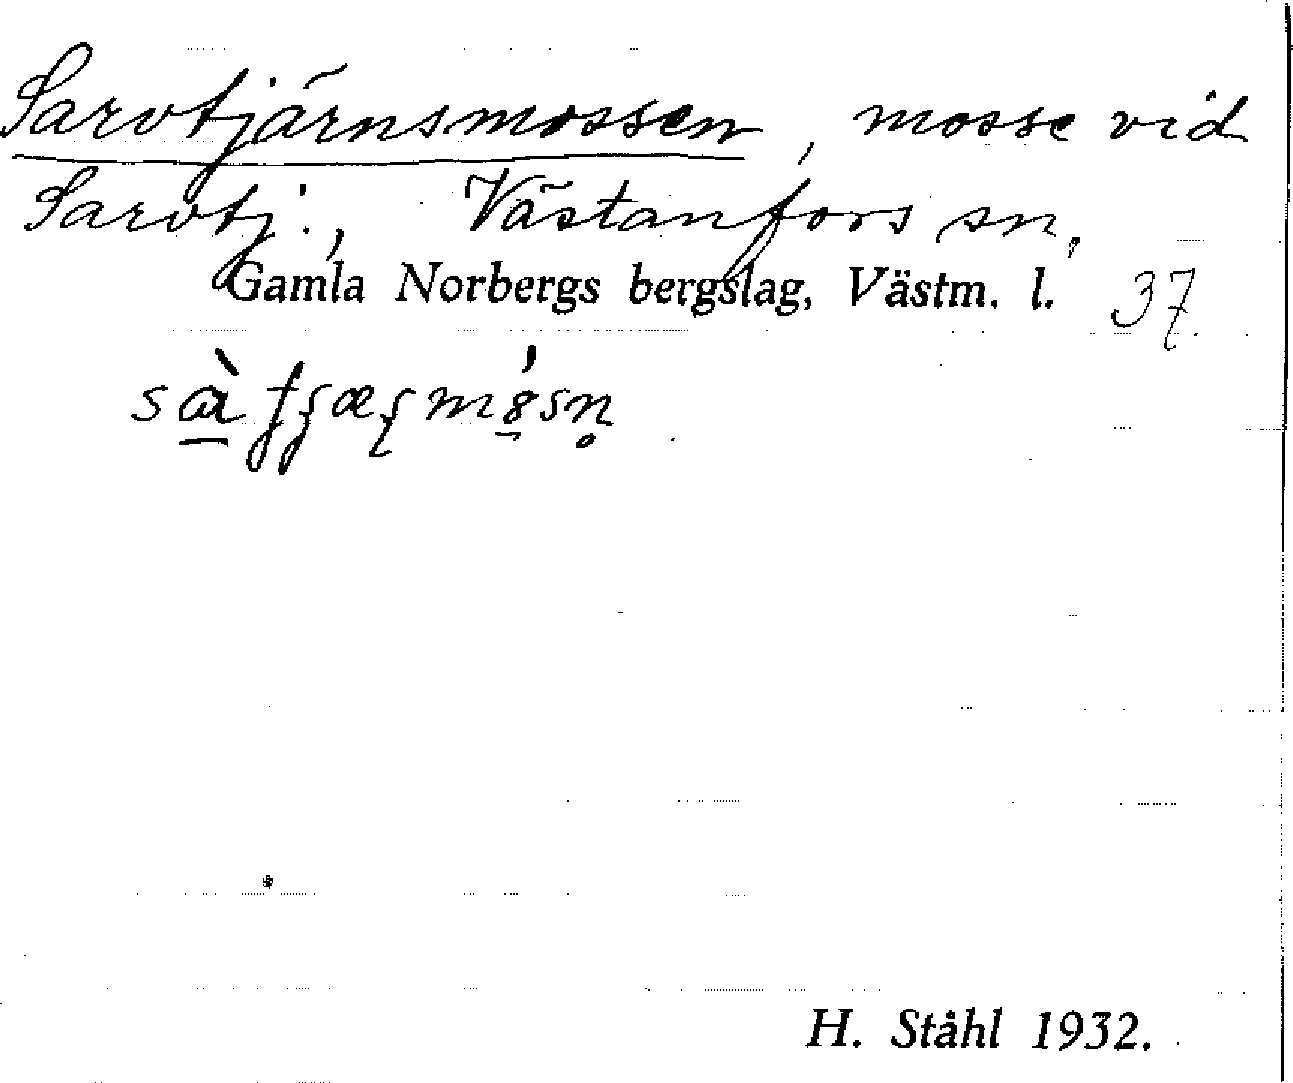 Sarvtjärnsmossen, mosse vid
Sarvtj., Västanfors sn,
Gamla Norbergs bergslag, Västm. l. 37.
H. Ståhl 1932.